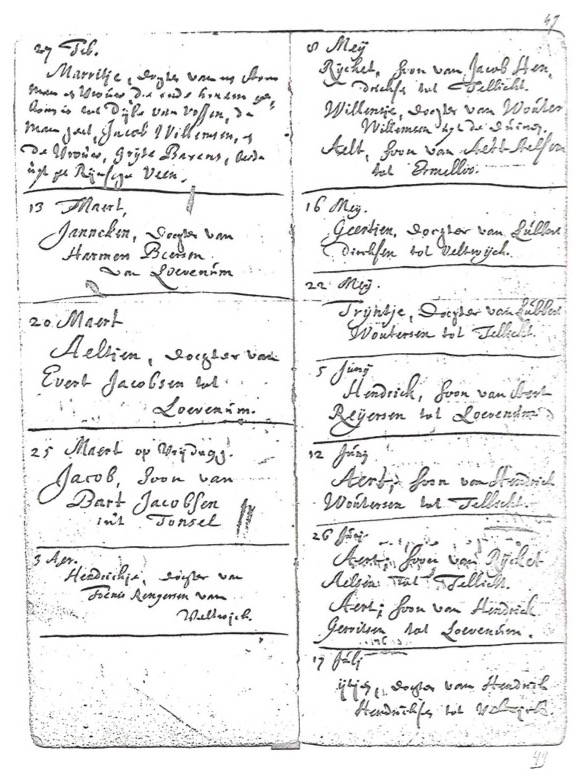 47
27 Feb.
Marritje, dogter van
man et vrouw die
to van Vossen, de
man Jacob Willemsen,
de Vrouw, Grijte Barens,
Veen.
13 Maert,
Janneken, Dogter van
Harmen
van Loevenum
20 Maert
Aeltien, doegter van
Evert Jacobsen tot
Loevenum.
25 Maert op Vrijdagg.
Jacob, soon van
Bart Jacobsen
uit Tonsel
3
Hendrickje, dogter van
Rengersen van
Veltwijck.
8 Meij
Rijcket, soon van Jacob Hen,
dricksen tot Tellicht.
Willemtje, dogter van Wouter
Willemsen
Aelt, soon van Aelt Aeltsen
tot Ermello.
16 Meij.
Geertien, doegter van Lubbert
Dircksen tot Veltwijck.
22 Meij.
Trijntje, doegter van Lubbert
Woutersen tot Tellicht.
5 Junij
Hendrick, soon van Aert
Reijersen tot Loevenum
12 Junij
Aert, soon van Hendrick
Woutersen tot Tellicht.
26 Junij
Aert, soon van Rijcket
tot Tellicht.
Aert, soon van Hendrick
Gerritsen tot Loevenum.
17 Julij
dogter van Hendrick
Hendricksen tot Veltwijck.
49